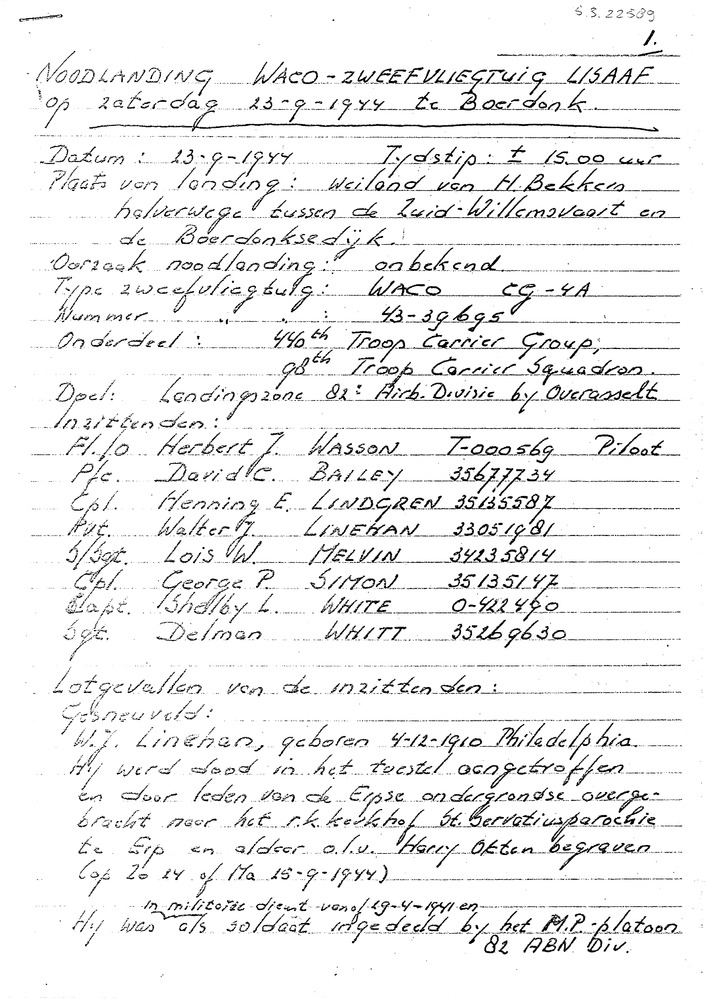 S.S. 22589
1.
NOODLANDING WACO-ZWEEFVLIEGTUIG USAAF
op zaterdag 23-9-1944 te Boerdonk.
Datum: 23-9-1944 Tydstip: ± 15.00 uur
Plaats van landing: weiland van H. Bekkers
halverwege tussen de Zuid-Willemsvaart en
de Boerdonksedijk.
Oorzaak noodlanding: onbekend.
Type zweefvliegtuig: WACO CG-4A
Nummer " " : 43-39695
Onderdeel: 440th Troop Carrier Group,
98th Troop Carrier Squadron.
Doel: Landingszone 82e Airb. Divisie by Overasselt
Inzittenden:
Fl./O Herbert J. WASSON T-000569 Piloot
Pfc. David C. BAILEY 35677734
Cpl. Henning E. LINDGREN 35135587
Pvt. Walter J. LINEHAN 33051981
S/Sgt. Lois W. MELVIN 34235814
Cpl. George P. SIMON 35135147
Capt. Shelby L. WHITE 0-422490
Sgt. Delman WHITT 35269630
Lotgevallen van de inzittenden:
Gesneuveld:
W.J. Linehan, geboren 4-12-1910 Philadelphia.
Hy werd dood in het toestel aangetroffen
en door leden van de Erpse ondergrondse overge-
bracht naar het r.k. kerkhof St. Servatiusparochie
te Erp en aldaar o.l.v. Harry Otten begraven
(op Zo 24 of Ma 25-9-1944)
in militaire dienst vanaf 29-4-1941 en
Hy was als soldaat ingedeeld by het M.P.-platoon
82 ABN Div.